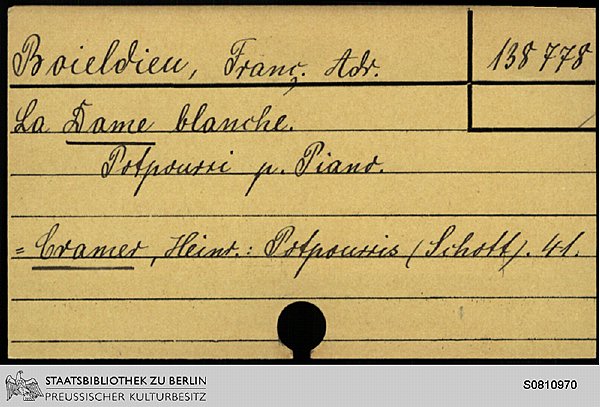 Boieldieu, Franç. Adr.
138778
La Dame blanche.
Potpourri p. Piano.
= Cramer, Heinr.: Potpourris (Schott). 41.
STAATSBIBLIOTHEK ZU BERLIN
PREUSSISCHER KULTURBESITZ
S0810970